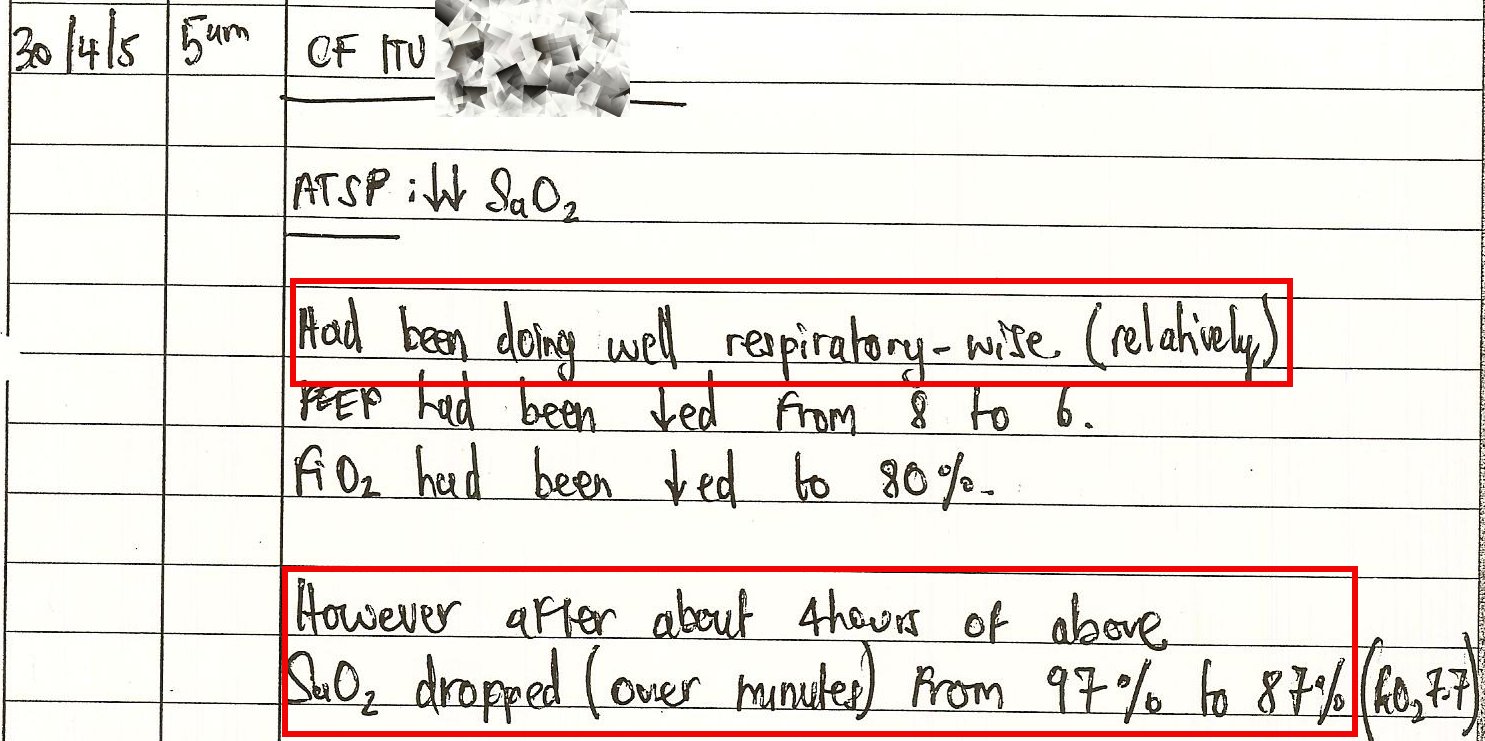 30/4/5 5am CF ITU
ATSP : ↓↓↓ SaO₂
Had been doing well respiratory-wise (relatively)
PEEP had been ↓ed from 8 to 6.
FiO₂ had been ↓ed to 80%.
However after about 4hours of above
SaO₂ dropped (over minutes) from 97% to 87% (PO₂ 7.7)